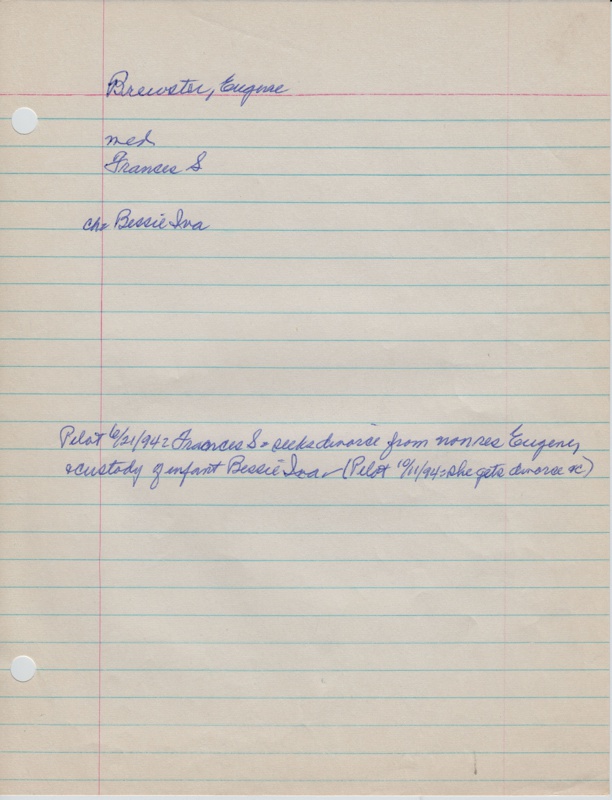 Brewster, Eugene
med
Frances S
ch= Bessie Iva
Pilot 6/21/94= Frances S= seeks divorce from nonres Eugene,
&custody of infant Bessie Iva- (Pilot 10/11/94=she gets divorce &c)